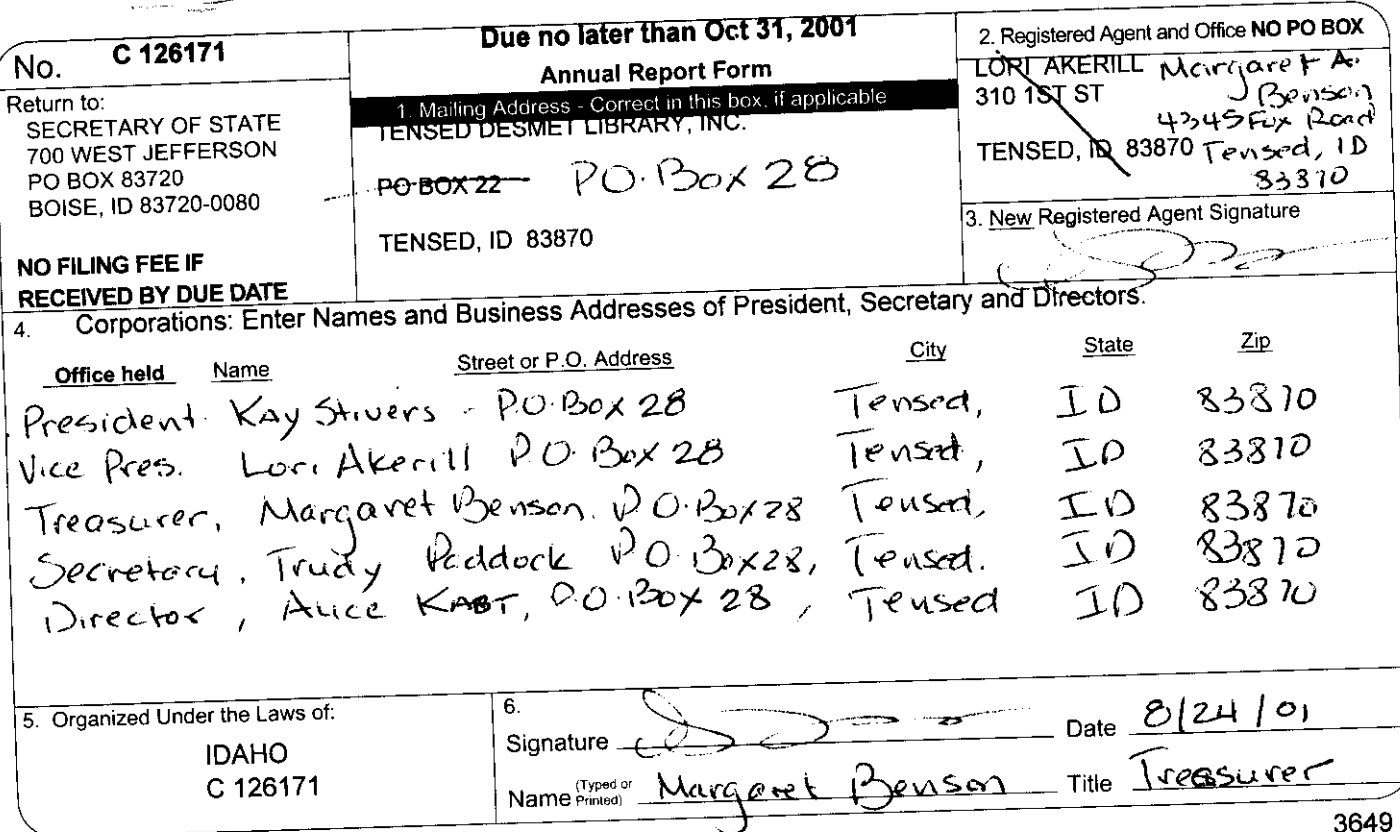 No. C 126171
Return to:
SECRETARY OF STATE
700 WEST JEFFERSON
PO BOX 83720
BOISE, ID 83720-0080
NO FILING FEE IF
RECEIVED BY DUE DATE
Due no later than Oct 31, 2001
Annual Report Form
1. Mailing Address - Correct in this box, if applicable
TENSED DESMET LIBRARY, INC.
PO BOX 22 P.O. Box 28
TENSED, ID 83870
2. Registered Agent and Office NO PO BOX
LORI AKERILL Margaret A.
310 1ST ST Benson
4345 Fox Road
TENSED, ID 83870 Tensed, ID
83870
3. New Registered Agent Signature
4. Corporations: Enter Names and Business Addresses of President, Secretary and Directors.
Office held Name Street or P.O. Address City State Zip
President. Kay Stivers - P.O. Box 28 Tensed, ID 83870
Vice Pres. Lori Akerill P.O. Box 28 Tensed, ID 83870
Treasurer, Margaret Benson. P.O. Box 28 Tensed, ID 83870
Secretary, Trudy Paddock P.O. Box 28, Tensed. ID 83870
Director, Alice P.O. Box 28, Tensed ID 83870
5. Organized Under the Laws of:
IDAHO
C 126171
6.
Signature Date 8/24/01
Name (Typed or Printed) Margaret Benson Title Treasurer
3649